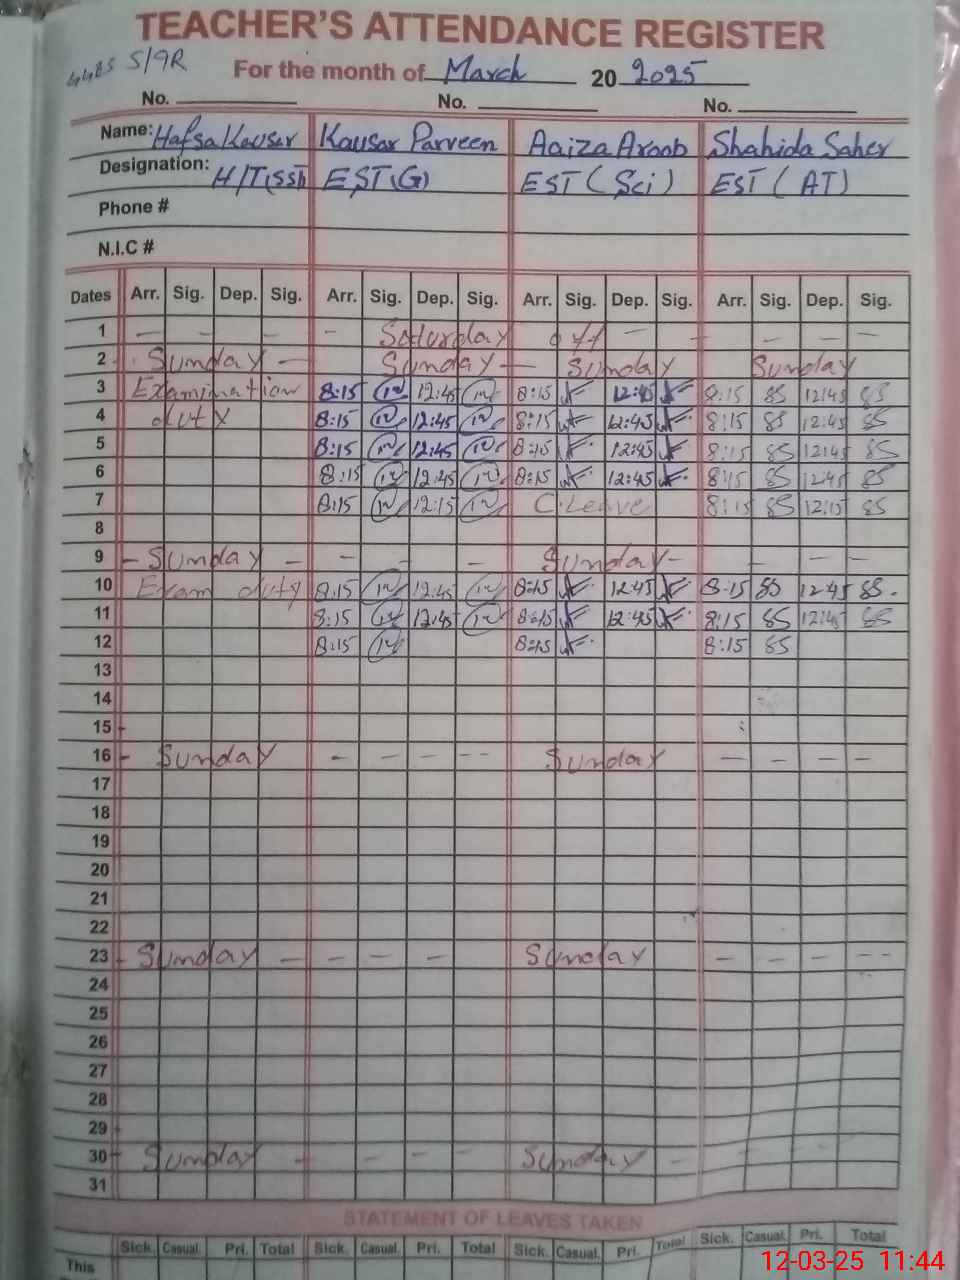 TEACHER'S ATTENDANCE REGISTER
44BS S/9R
For the month of March 20 2025
No. No. No.
Name: Hafsa Kausar Kausar Parveen Aaiza Aroob Shahida Saher
Designation: H/T(SSI) EST(G) EST (Sci) EST (AT)
Phone #
N.I.C #
Dates Arr. Sig. Dep. Sig. Arr. Sig. Dep. Sig. Arr. Sig. Dep. Sig. Arr. Sig. Dep. Sig.
1 - - - - Saturday off - - - - -
2 - Sunday - Sunday - Sunday Sunday
3 Examination 8:15 12:45 8:15 12:45 8:15 85 12:45 85
4 duty 8:15 12:45 8:15 12:45 8:15 85 12:45 85
5 8:15 12:45 8:15 12:45 8:15 85 12:45 85
6 8:15 12:45 8:15 12:45 8:15 85 12:45 85
7 8:15 12:15 C.Leave 8:15 85 12:15 85
8
9 - Sunday - - - - Sunday - - -
10 Exam duty 8:15 12:45 8:15 12:45 8:15 85 12:45 85.
11 8:15 12:45 8:15 12:45 8:15 85 12:45 85
12 8:15 8:15 8:15 85
13
14
15
16 - Sunday - - - -- Sunday - - - -
17
18
19
20
21
22
23 - Sunday - - - - Sunday - - - --
24
25
26
27
28
29
30 - Sunday - - - - Sunday - - - -
31
STATEMENT OF LEAVES TAKEN
Sick. Casual. Pri. Total Sick. Casual. Pri. Total Sick. Casual. Pri. Total Sick. Casual. Pri. Total
This
12-03-25 11:44